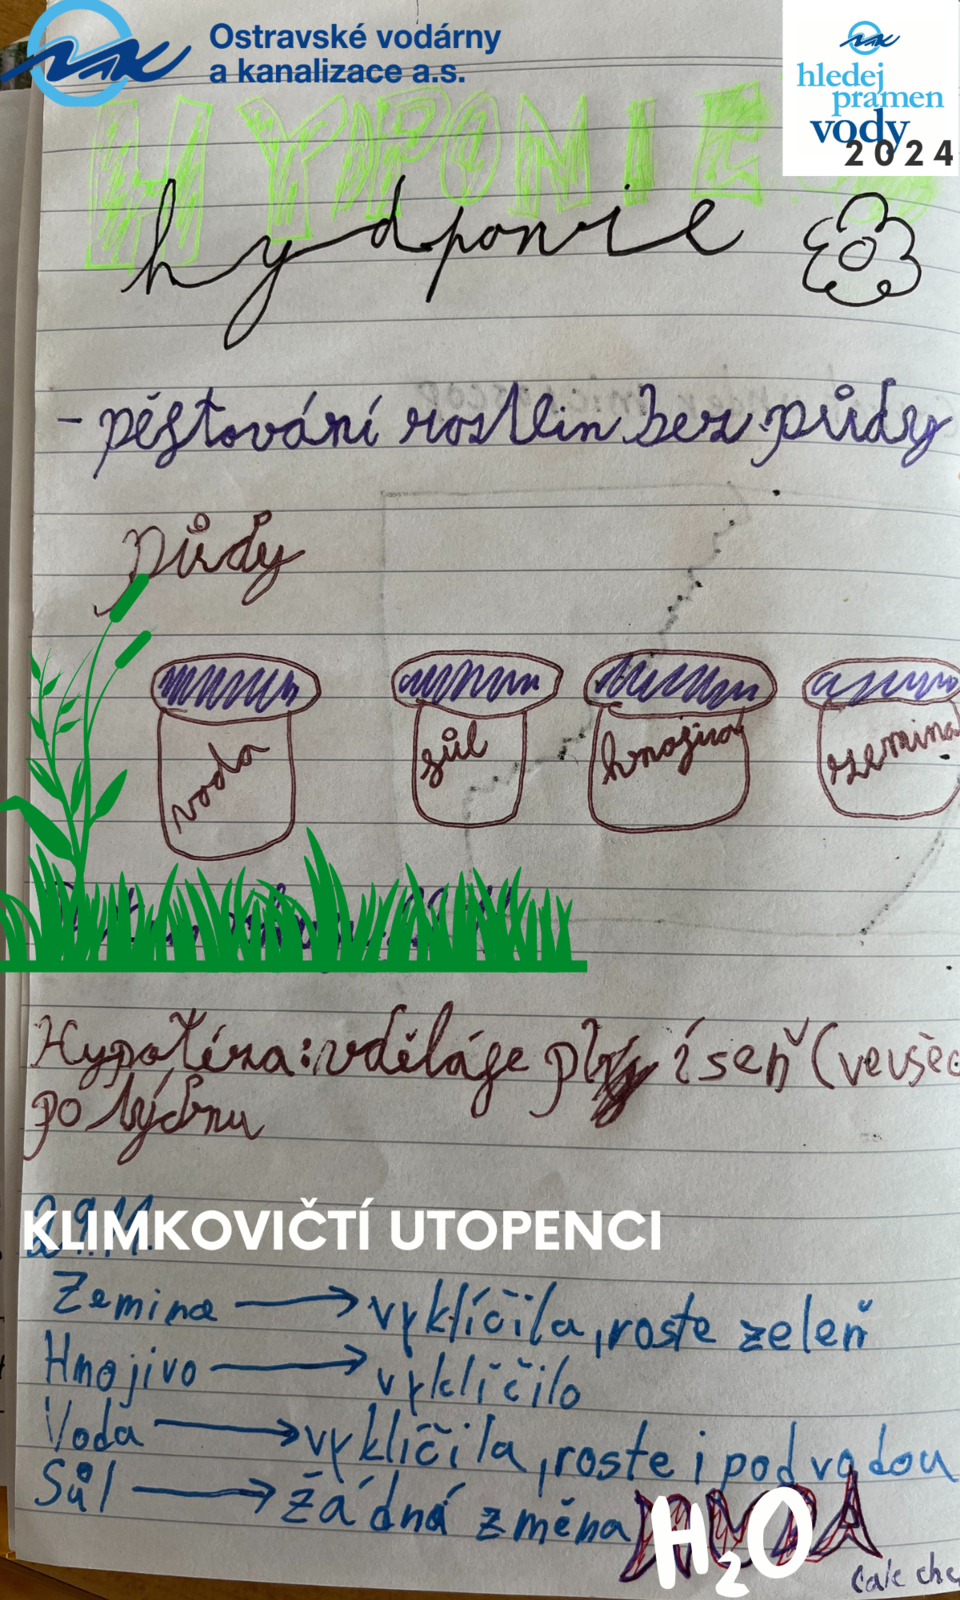 Ostravské vodárny
a kanalizace a.s.
hledej
pramen
vody
2024
HYPONIE
hydponie
- pěstování rostlin bez půdy
půdy
voda
sůl
hnojivo
zemina
Hypotéza: vděláge plíseň (ve všec
po týdnu
29.11.
KLIMKOVIČTÍ UTOPENCI
Zemina → vyklíčila, roste zeleň
Hnojivo → vyklíčilo
Voda → vyklíčila, roste i pod vodou
Sůl → žádná změna
H2O